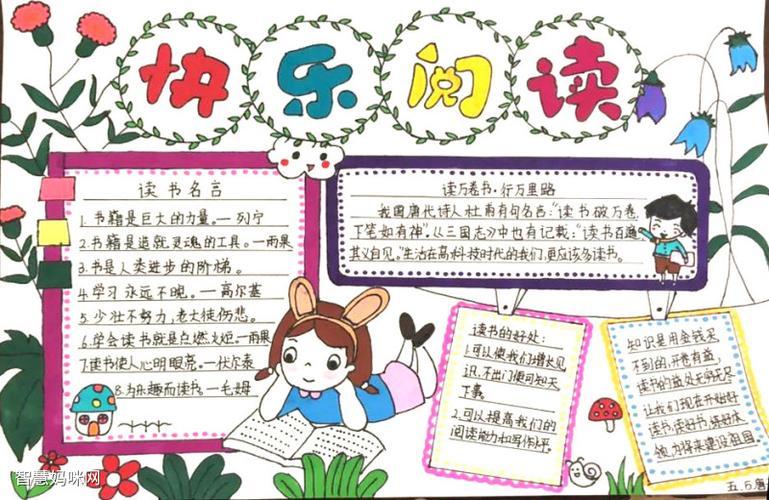 快乐阅读
读书名言
1.书籍是巨大的力量。—列宁
2.书籍是造就灵魂的工具。—雨果
3.书是人类进步的阶梯。
4.学习永远不晚。—高尔基
5.少壮不努力,老大徒伤悲。
6.学会读书就是点燃火炬。—雨果
7.读书使人心明眼亮。—伏尔泰
8.为乐趣而读书。—毛姆
读万卷书·行万里路
我国唐代诗人杜甫有句名言:"读书破万卷,
下笔如有神"。从三国志少中也有记载:"读书百遍
其义自见。"生活在高科技时代的我们,更应该多读书。
读书的好处:
1.可以使我们增长见
识,不出门便可知天
下事。
2.可以提高我们的
阅读能力和写作水平。
知识是用金钱买
不到的,开卷有益,
读书的益处无穷无尽
让我们现在开始好
读书,读好书,练好本
领,为将来建设祖国
五.5
智慧妈咪网